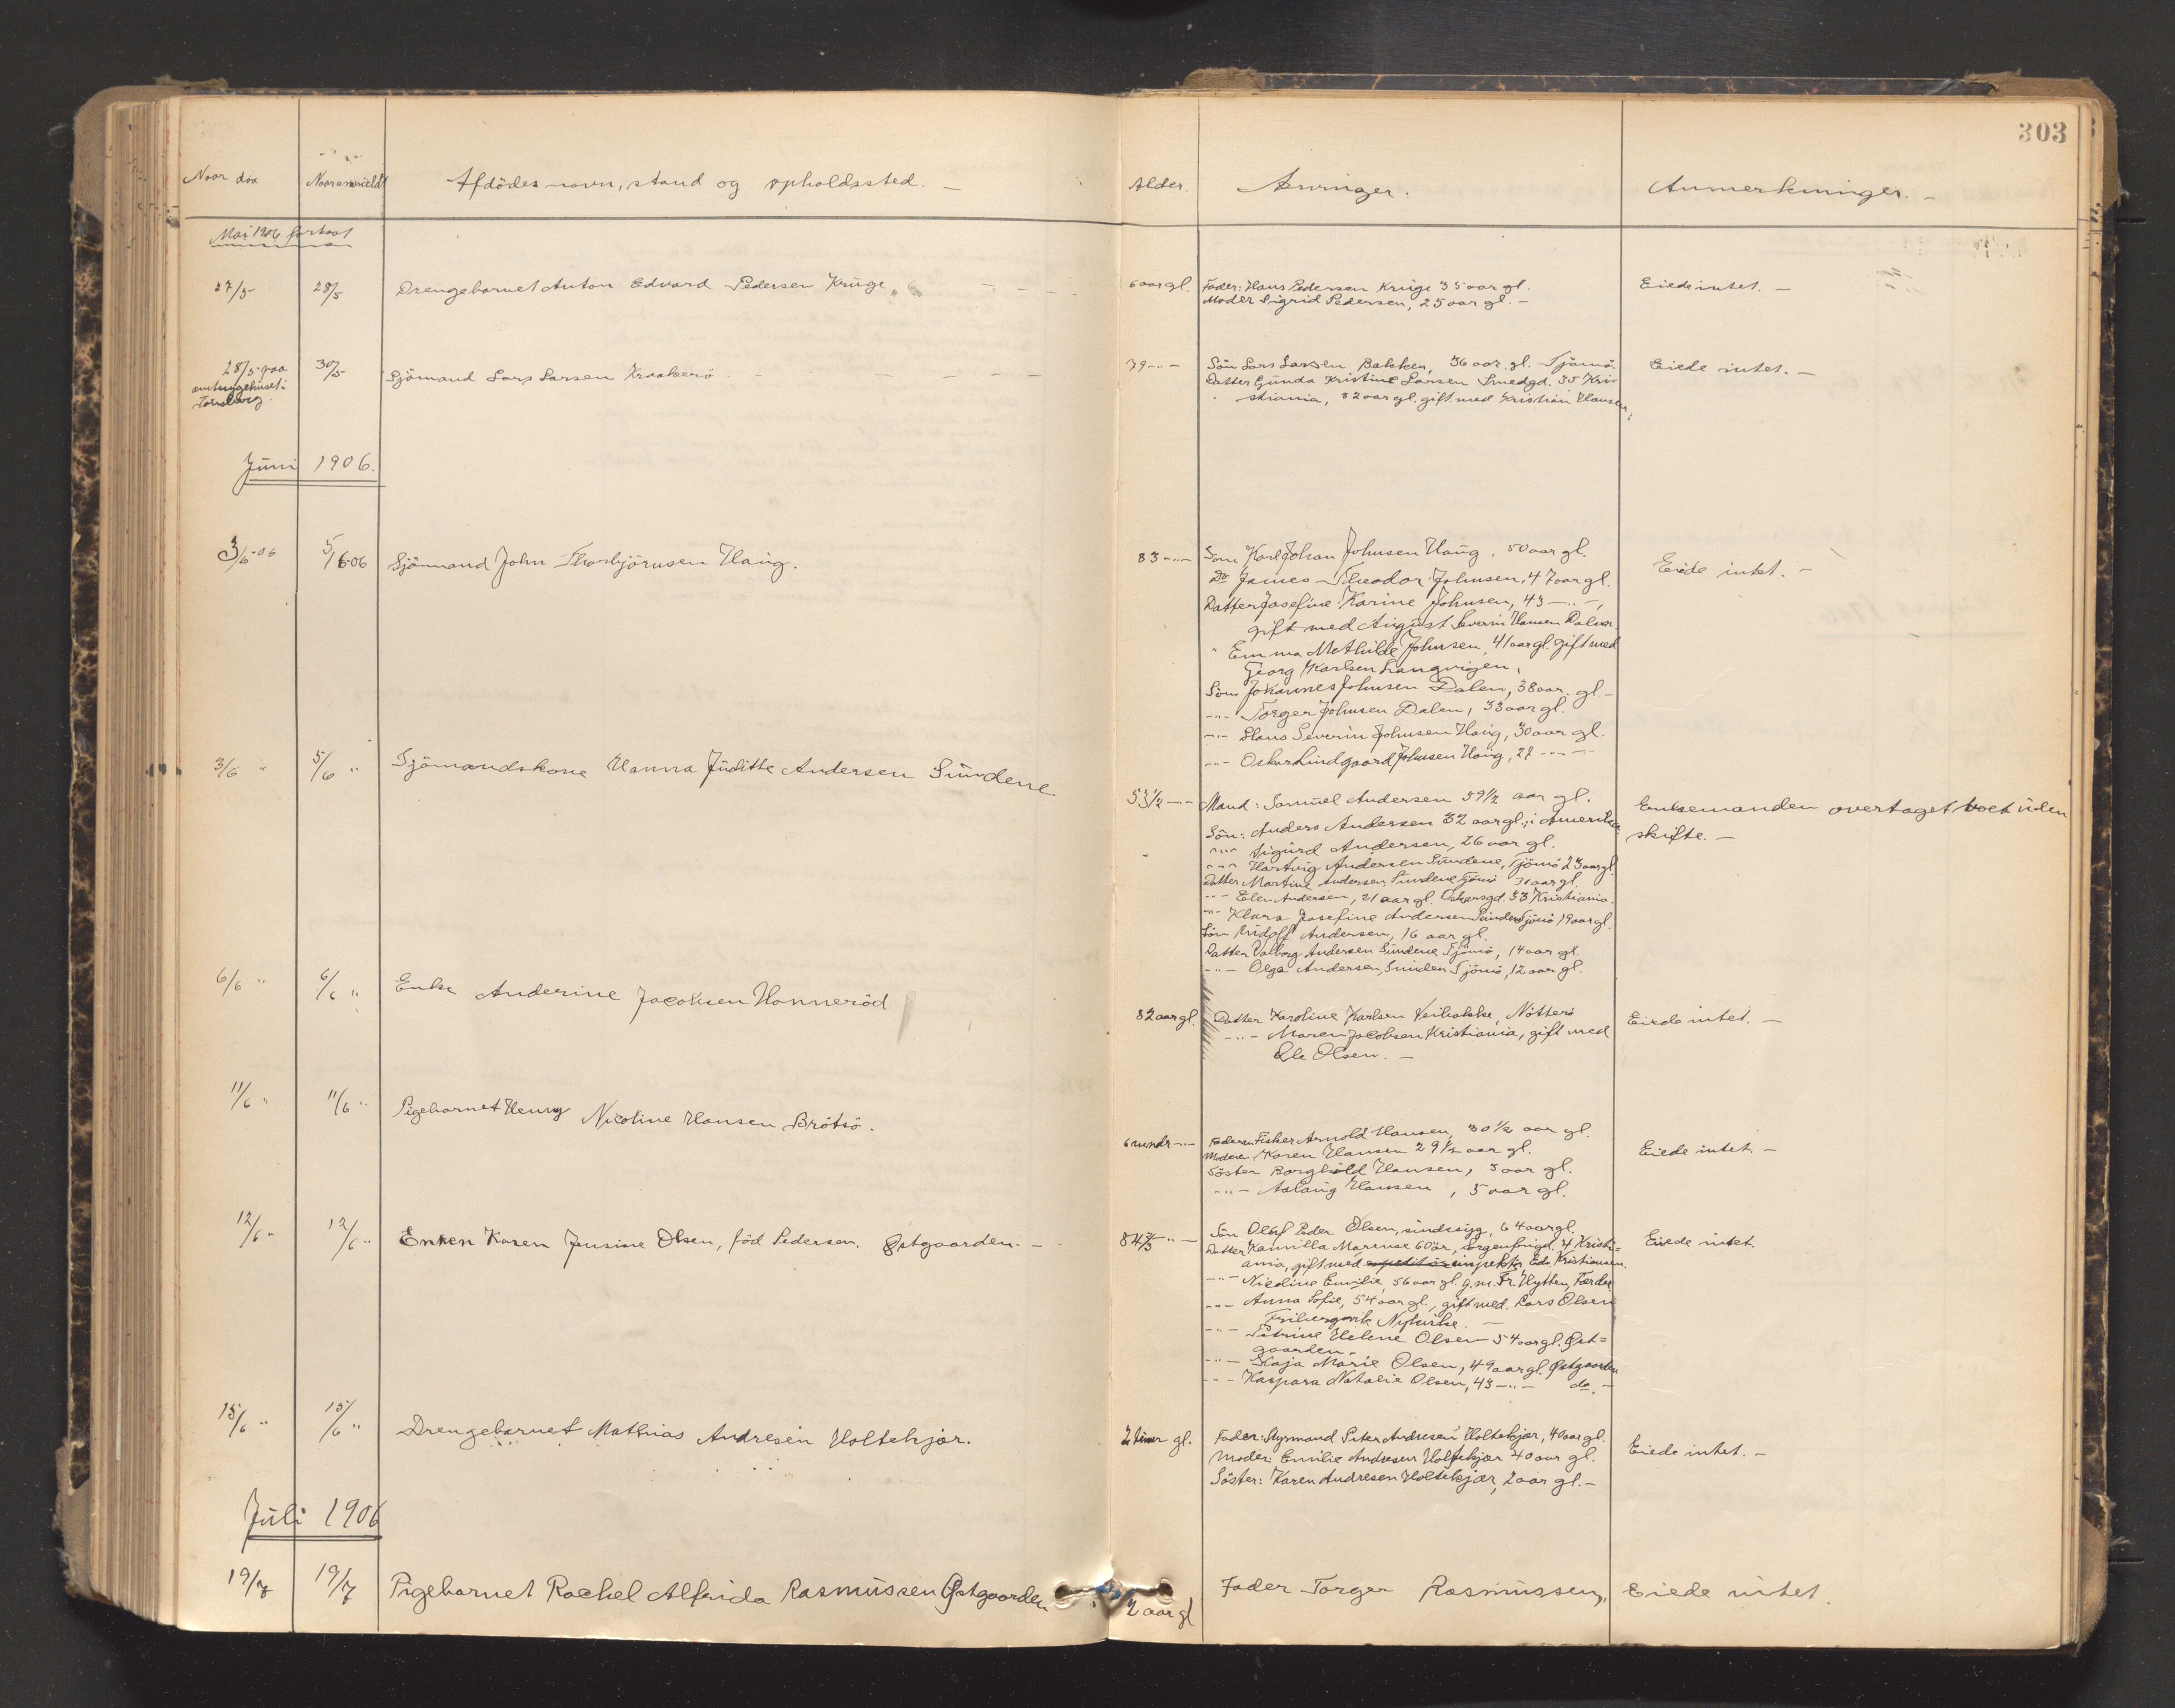 303
Naar död Naar anmeldt Afdödes navn, stand og opholdssted. — Alder. Arvinger. Anmerkninger. —
Mai 1906 fortsat
27/5 28/5 Drengebarnet Anton Edvard Pedersen Kruge 6 aar gl. Fader: Hans Pedersen Kruge 35 aar gl. Eiede intet. —
Moder Sigrid Pedersen, 25 aar gl. —
28/5 paa 30/5 Sjömand Lars Larsen Kraakerö 79 —"— Sön Lars Larsen Bakken, 36 aar gl. Tjömö. Eiede intet. —
amtssygehuset i Datter Gunda Kristine Larsen Smedgd. 35 Kri-
Tönsberg. stiania, 32 aar gl. gift med Kristian Hansen.
Juni 1906.
3/6-06 5/6-06 Sjömand John Thorbjörnsen Haug. 83 —"— Sön Karl Johan Johnsen Haug, 50 aar gl. Eiede intet. —
Do James Theodor Johnsen, 47 aar gl.
Datter Josefine Karine Johnsen, 43 —"—,
gift med August Severin Hansen Dalen.
" Emma Mathilde Johnsen, 41 aar gl. gift med
Georg Karlsen Langvigen,
Sön Johannes Johnsen Dalen, 38 aar gl. —
—"— Torger Johnsen Dalen, 33 aar gl.
—"— Hans Severin Johnsen Haug, 30 aar gl.
—"— Oskar Lindgaard Johnsen Haug, 27 —"—
3/6 " 5/6 " Sjömandskone Hanna Juditte Andersen Sundene 53 1/2 —"— Mand: Samuel Andersen 59 1/2 aar gl. Enkemanden overtaget boet uden
Sön: Anders Andersen 32 aar gl., i Amerika skifte. —
—"— Sigurd Andersen, 26 aar gl.
—"— Hartvig Andersen Sundene, Tjömö 23 aar gl.
Datter Martine Andersen Sundene Tjömö 30 aar gl.
—"— Elen Andersen, 21 aar gl. Oskarsgd. 33 Kristiania.
—"— Klara Josefine Andersen Sundene Tjömö 19 aar gl.
Sön Rudolf Andersen, 16 aar gl.
Datter Valborg Andersen Sundene Tjömö, 14 aar gl.
—"— Olga Andersen, Sunden Tjömö, 12 aar gl.
6/6 " 6/6 " Enke Anderine Jacobsen Honneröd 82 aar gl. Datter Karoline Karlsen Nötterö Eiede intet. —
—"— Maren Jacobsen Kristiania, gift med
Ole Olsen. —
11/6 " 11/6 " Pigebarnet Henny Nicoline Hansen Brötsö. 6 mndr —"— Faderen Fisker Arnold Hansen, 30 1/2 aar gl. Eiede intet. —
Moderen, Karen Hansen 29 1/2 aar gl.
Söster Borghild Hansen, 3 aar gl.
—"— Aslaug Hansen, 5 aar gl.
12/6 " 12/6 " Enken Karen Jensine Olsen, föd Pedersen, Östgaarden. — 84 2/3 —"— Sön Oluf Peder Olsen, sindssyg, 64 aar gl. Eiede intet.
Datter Kamilla Marense 60 år, Sorgenfrigd. 4 Kristi-
ania, gift med inspektör Edv. Kristiansen.
—"— Nicoline Emilie, 56 aar gl. g. m. Fr. Hytten, Færder
—"— Anna Sofie, 54 aar gl., gift med. Lars Olsen
Nykirke. —
—"— Petrine Helene Olsen 54 aar gl. Öst=
gaarden. —
—"— Kaja Marie Olsen, 49 aar gl. Östgaarden
—"— Kaspara Natalie Olsen, 43 —"— do. —
15/6 " 15/6 " Drengebarnet Mathias Andresen Holtekjær. 2 timer gl. Fader: Styrmand Peter Andresen Holtekjær, 40 aar gl. Eiede intet. —
Moder: Emilie Andresen Holtekjær 40 aar gl.
Söster: Karen Andresen Holtekjær, 2 aar gl. —
Juli 1906
19/7 19/7 Pigebarnet Rachel Alfrida Rasmussen Östgaarden 2 aar gl Fader Torger Rasmussen, Eiede intet.